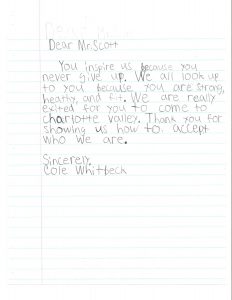 Dear Mr.Scott
You inspire us because you
never give up. We all look up
to you because you are strong,
heathy, and fit. We are really
exited for you to come to
charlotte valley. Thank you for
showing us how to accept
who we are.
Sincerely,
Cole Whitbeck